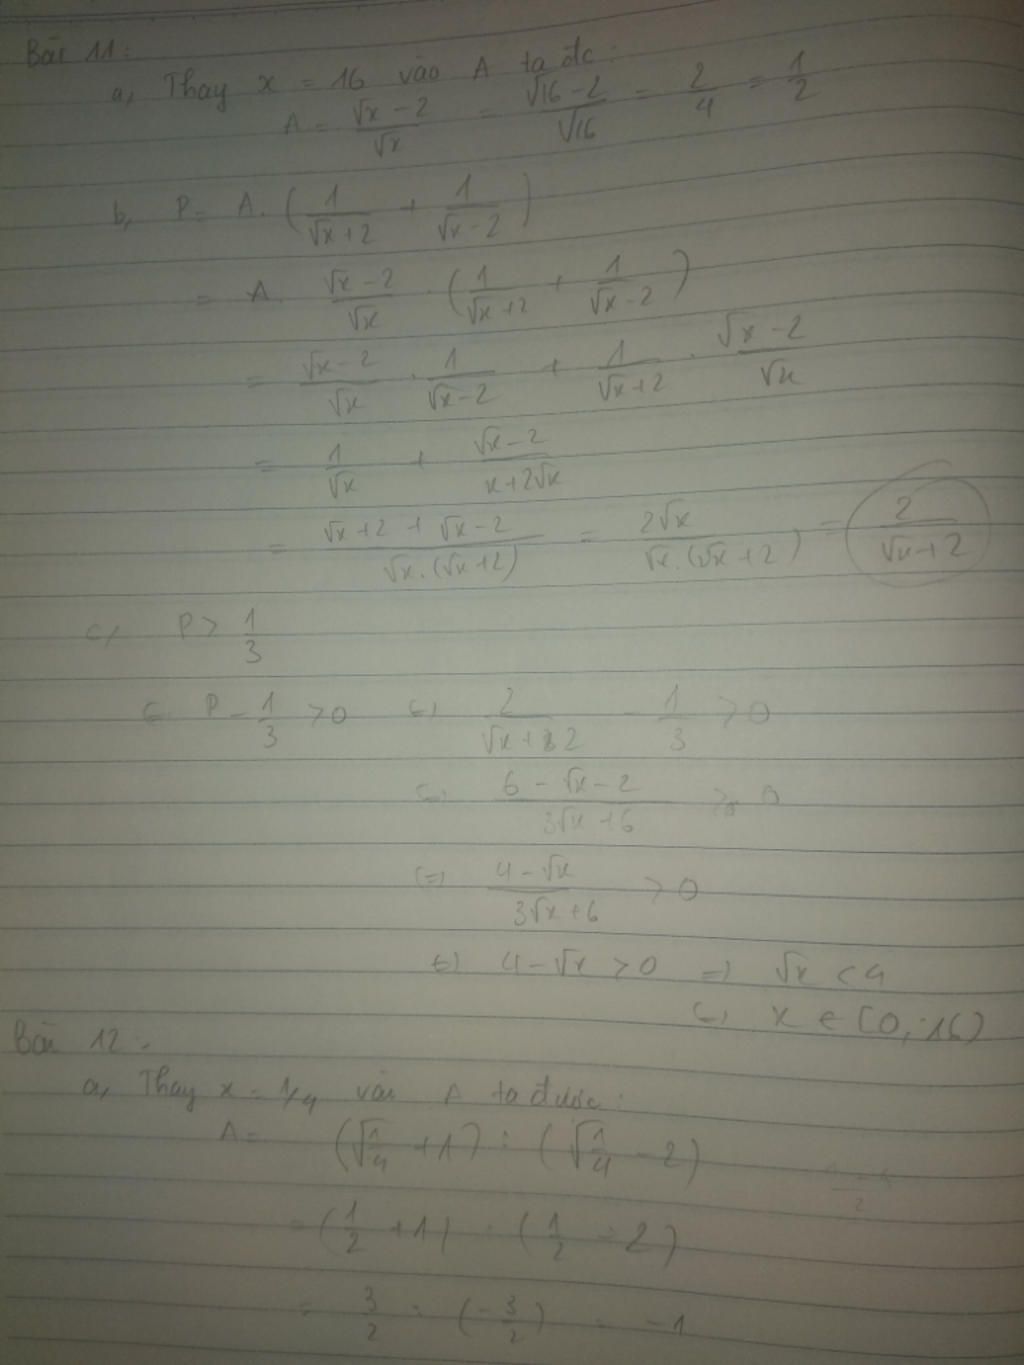 Bài 11:
a, Thay x = 16 vào A ta đc:
A = (√x - 2)/√x = (√16 - 2)/√16 = 2/4 = 1/2
b, P = A. (1/(√x + 2) + 1/(√x - 2))
= A. (√x - 2)/√x . (1/(√x + 2) + 1/(√x - 2))
= (√x - 2)/√x . 1/(√x - 2) + 1/(√x + 2) . (√x - 2)/√x
= 1/√x + (√x - 2)/(x + 2√x)
= (√x + 2 + √x - 2)/(√x.(√x + 2)) = 2√x/(√x.(√x + 2)) = 2/(√x + 2)
c, P > 1/3
P - 1/3 > 0 (=) 2/(√x + 2) - 1/3 > 0
(=) (6 - √x - 2)/(3√x + 6) > 0
(=) (4 - √x)/(3√x + 6) > 0
(=) 4 - √x > 0 =) √x < 4
(=) x ∈ [0; 16)
Bài 12:
a, Thay x = 1/4 vào A ta được:
A = (√1/4 + 1) : (√1/4 - 2)
= (1/2 + 1) : (1/2 - 2)
= 3/2 : (-3/2) = -1